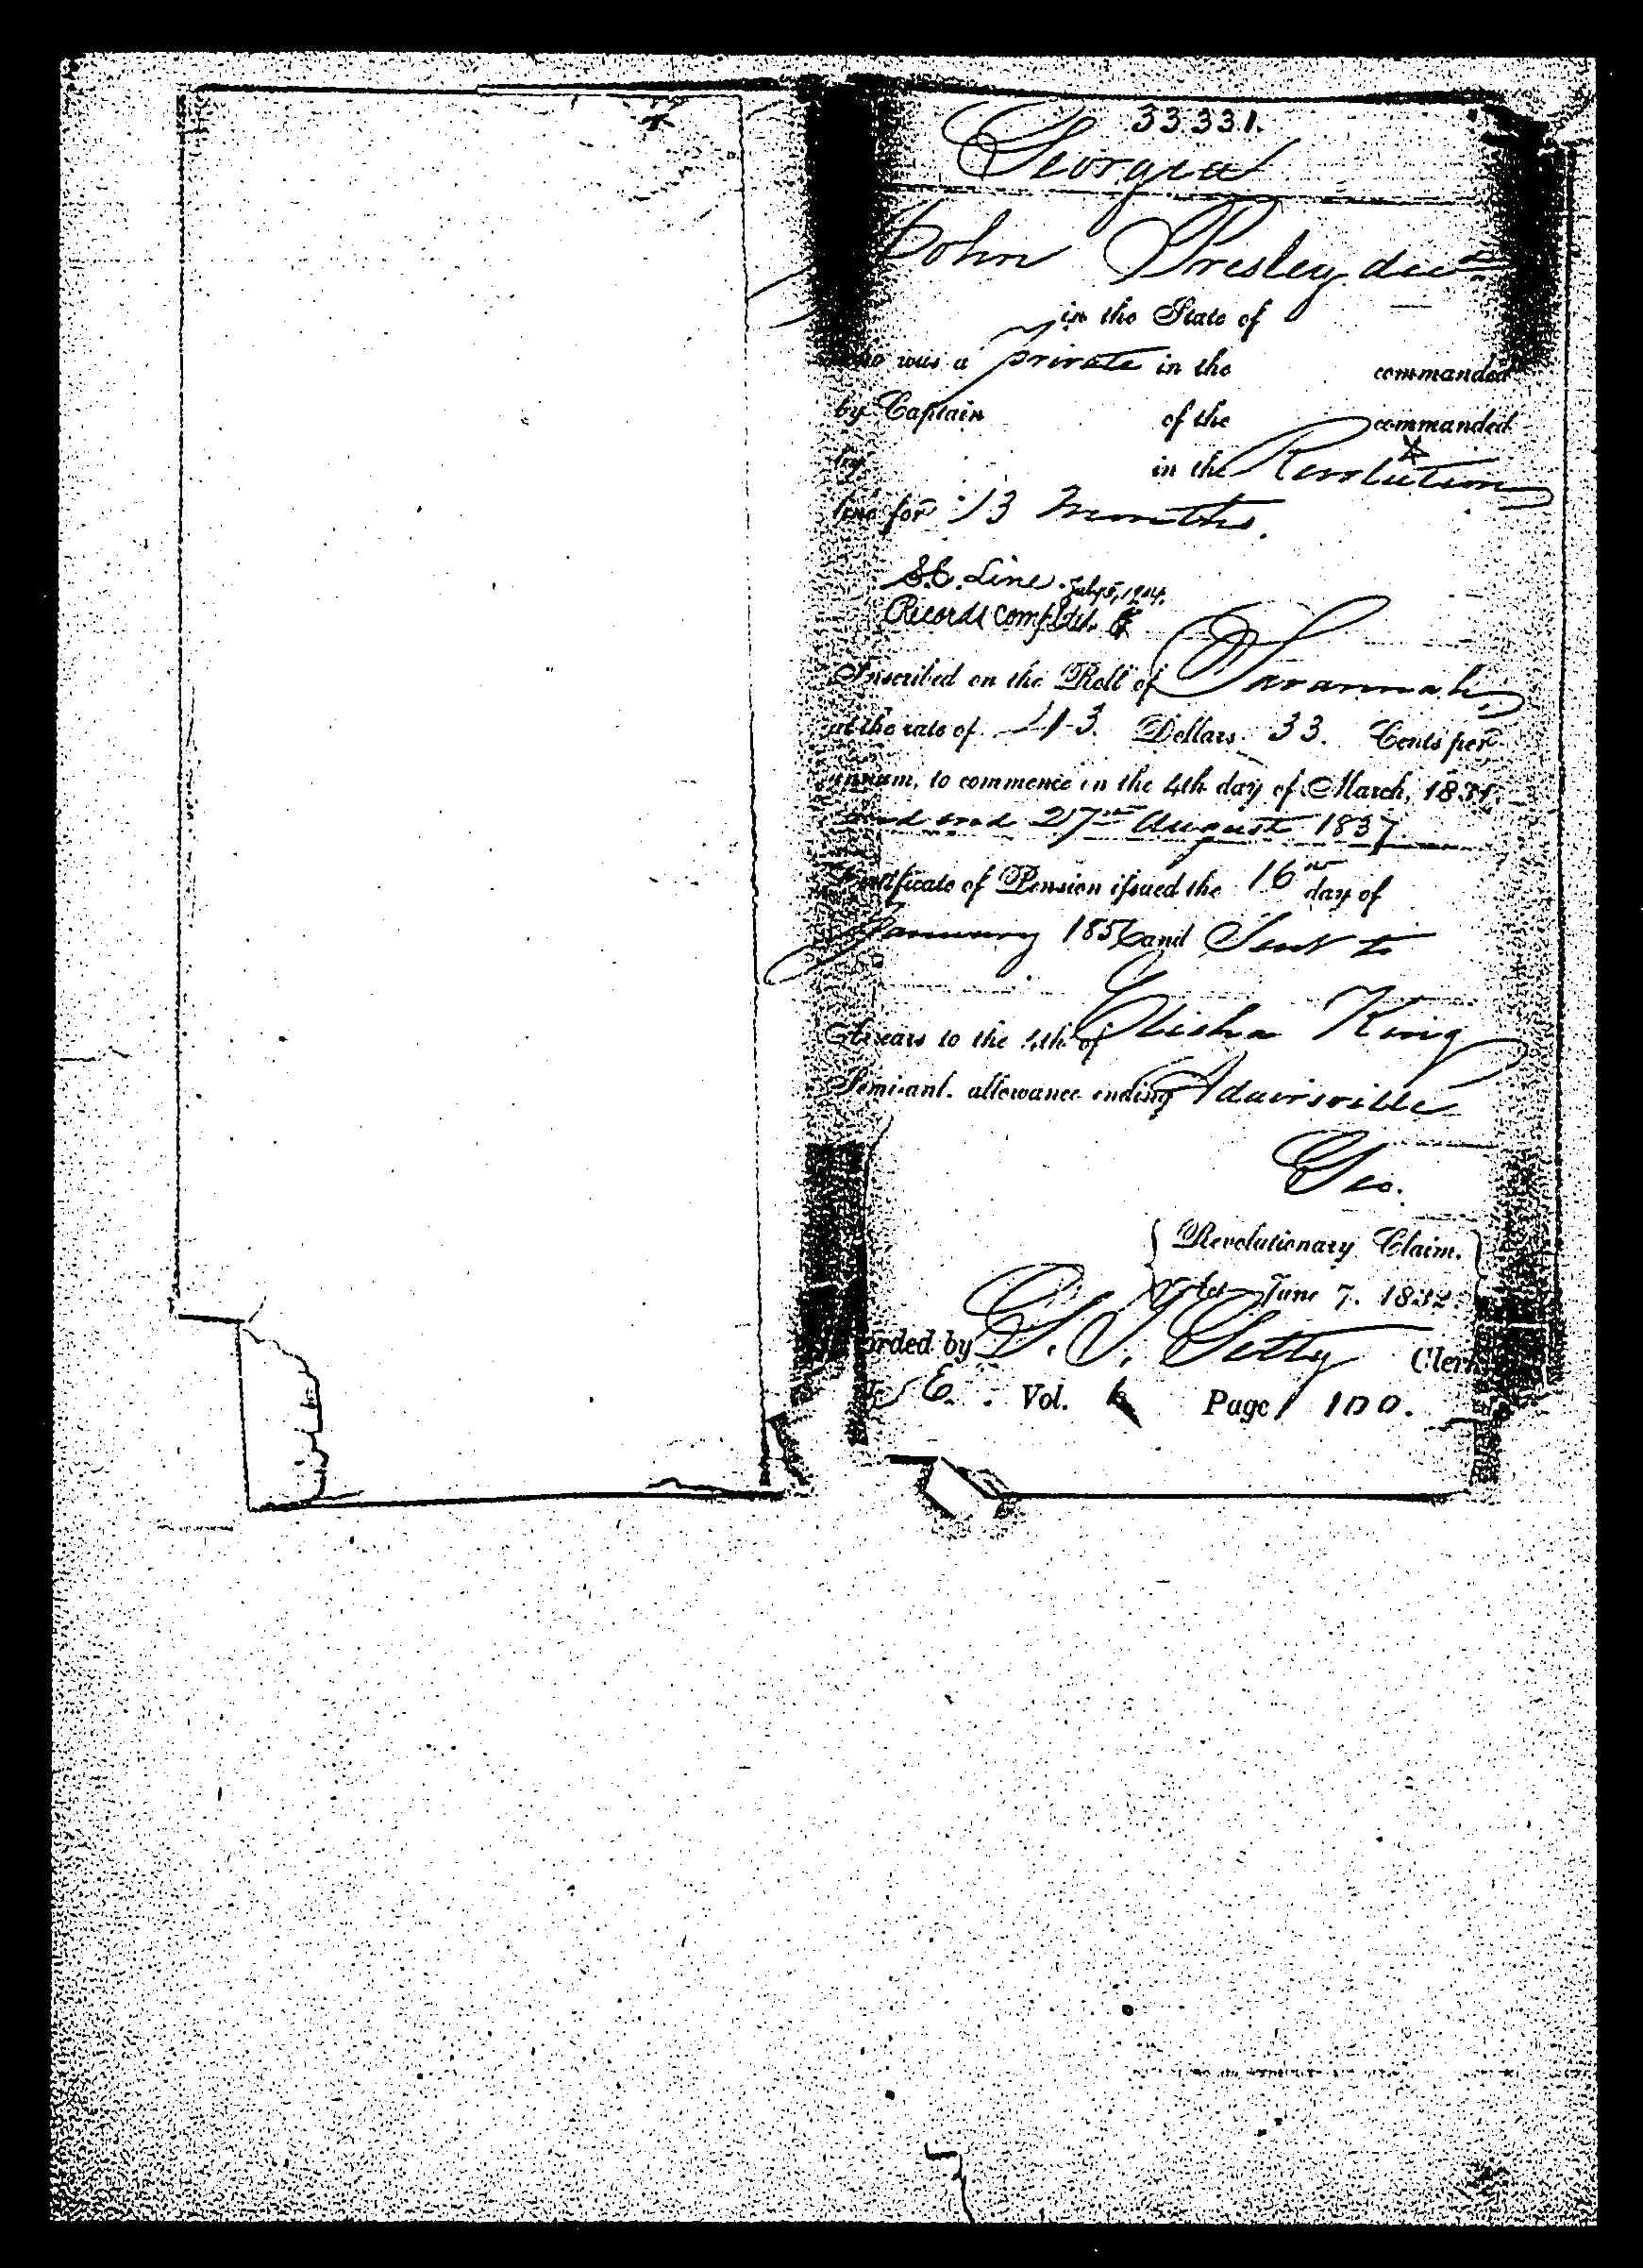 33331.
Georgia
John Presley decd
in the State of
who was a private in the commanded
by Captain of the commanded
by in the Revolution
line for 13 months.
S.C. Line July 5, 1904.
Records complete.
Inscribed on the Roll of Savannah
at the rate of 43 Dollars 33. Cents per
annum, to commence on the 4th day of March, 1831,
and end 27th August 1837.
Certificate of Pension issued the 16th day of
January 1856 and Sent to
Elisha King
Arrears to the 4th of
Semi-anl. allowance ending Adairsville
Geo.
Revolutionary Claim.
Act June 7. 1832.
Recorded by Clerk
E. Vol. Page 100.